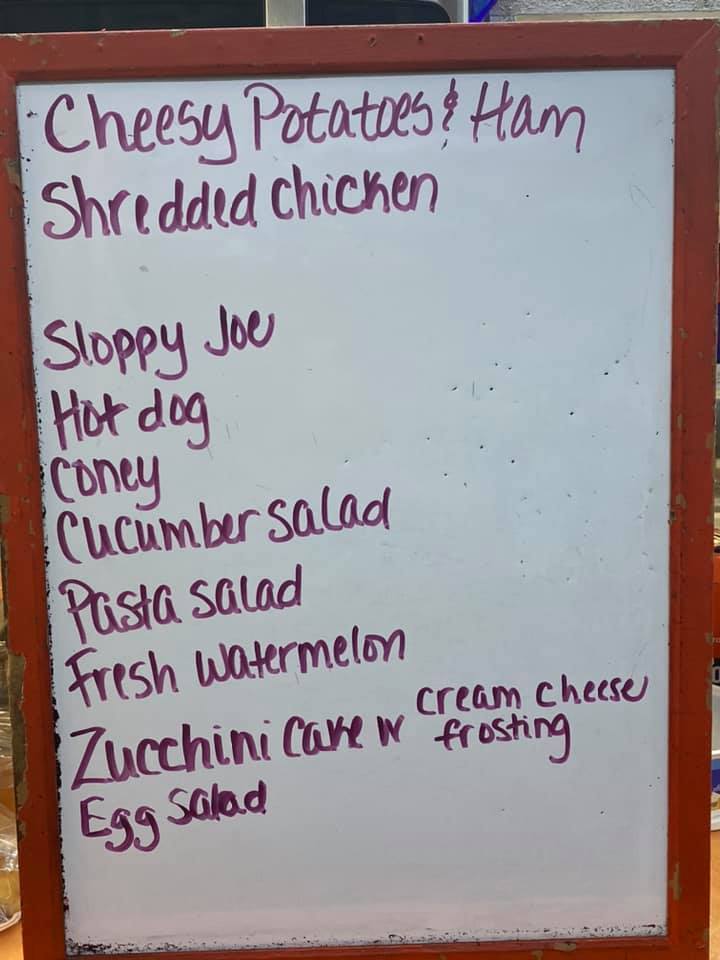 Cheesy Potatoes & Ham
Shredded Chicken
Sloppy Joe
Hot dog
Coney
Cucumber salad
Pasta salad
Fresh Watermelon
Zucchini Cake w cream cheese frosting
Egg Salad